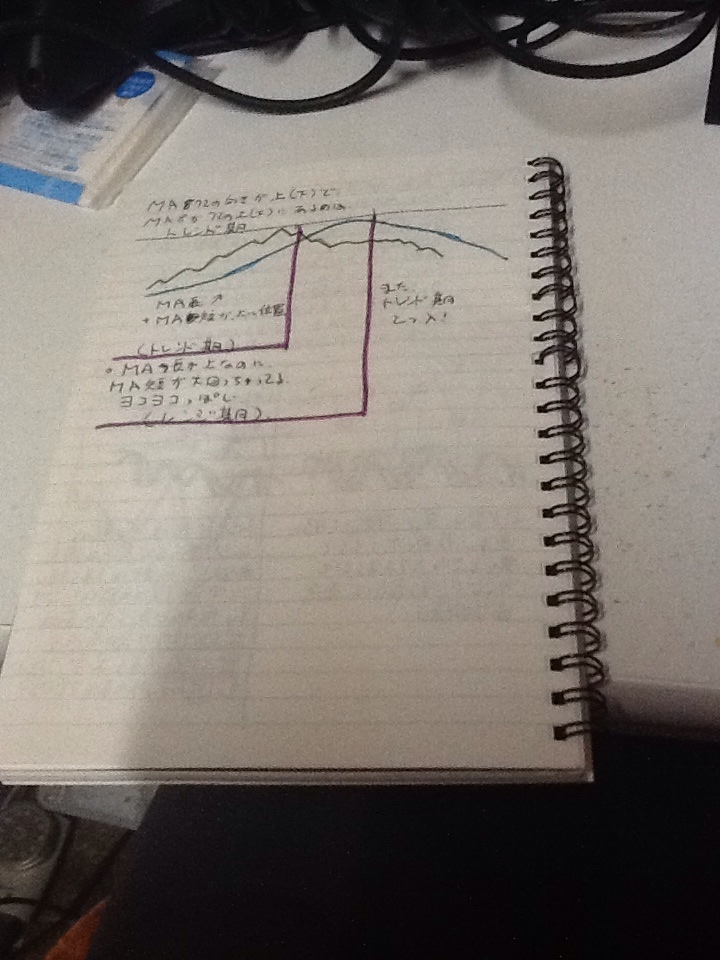 MA 872の向きが上(下)で
MA 8が72の上(下)にあるのは
トレンド期
MA長↗
+MA短が上に位置
(トレンド期)
。MA長が上なのに
MA短が下回っちゃってる
ヨコヨコっぽい
(レンジ期)
また
トレンド期
とつ入!